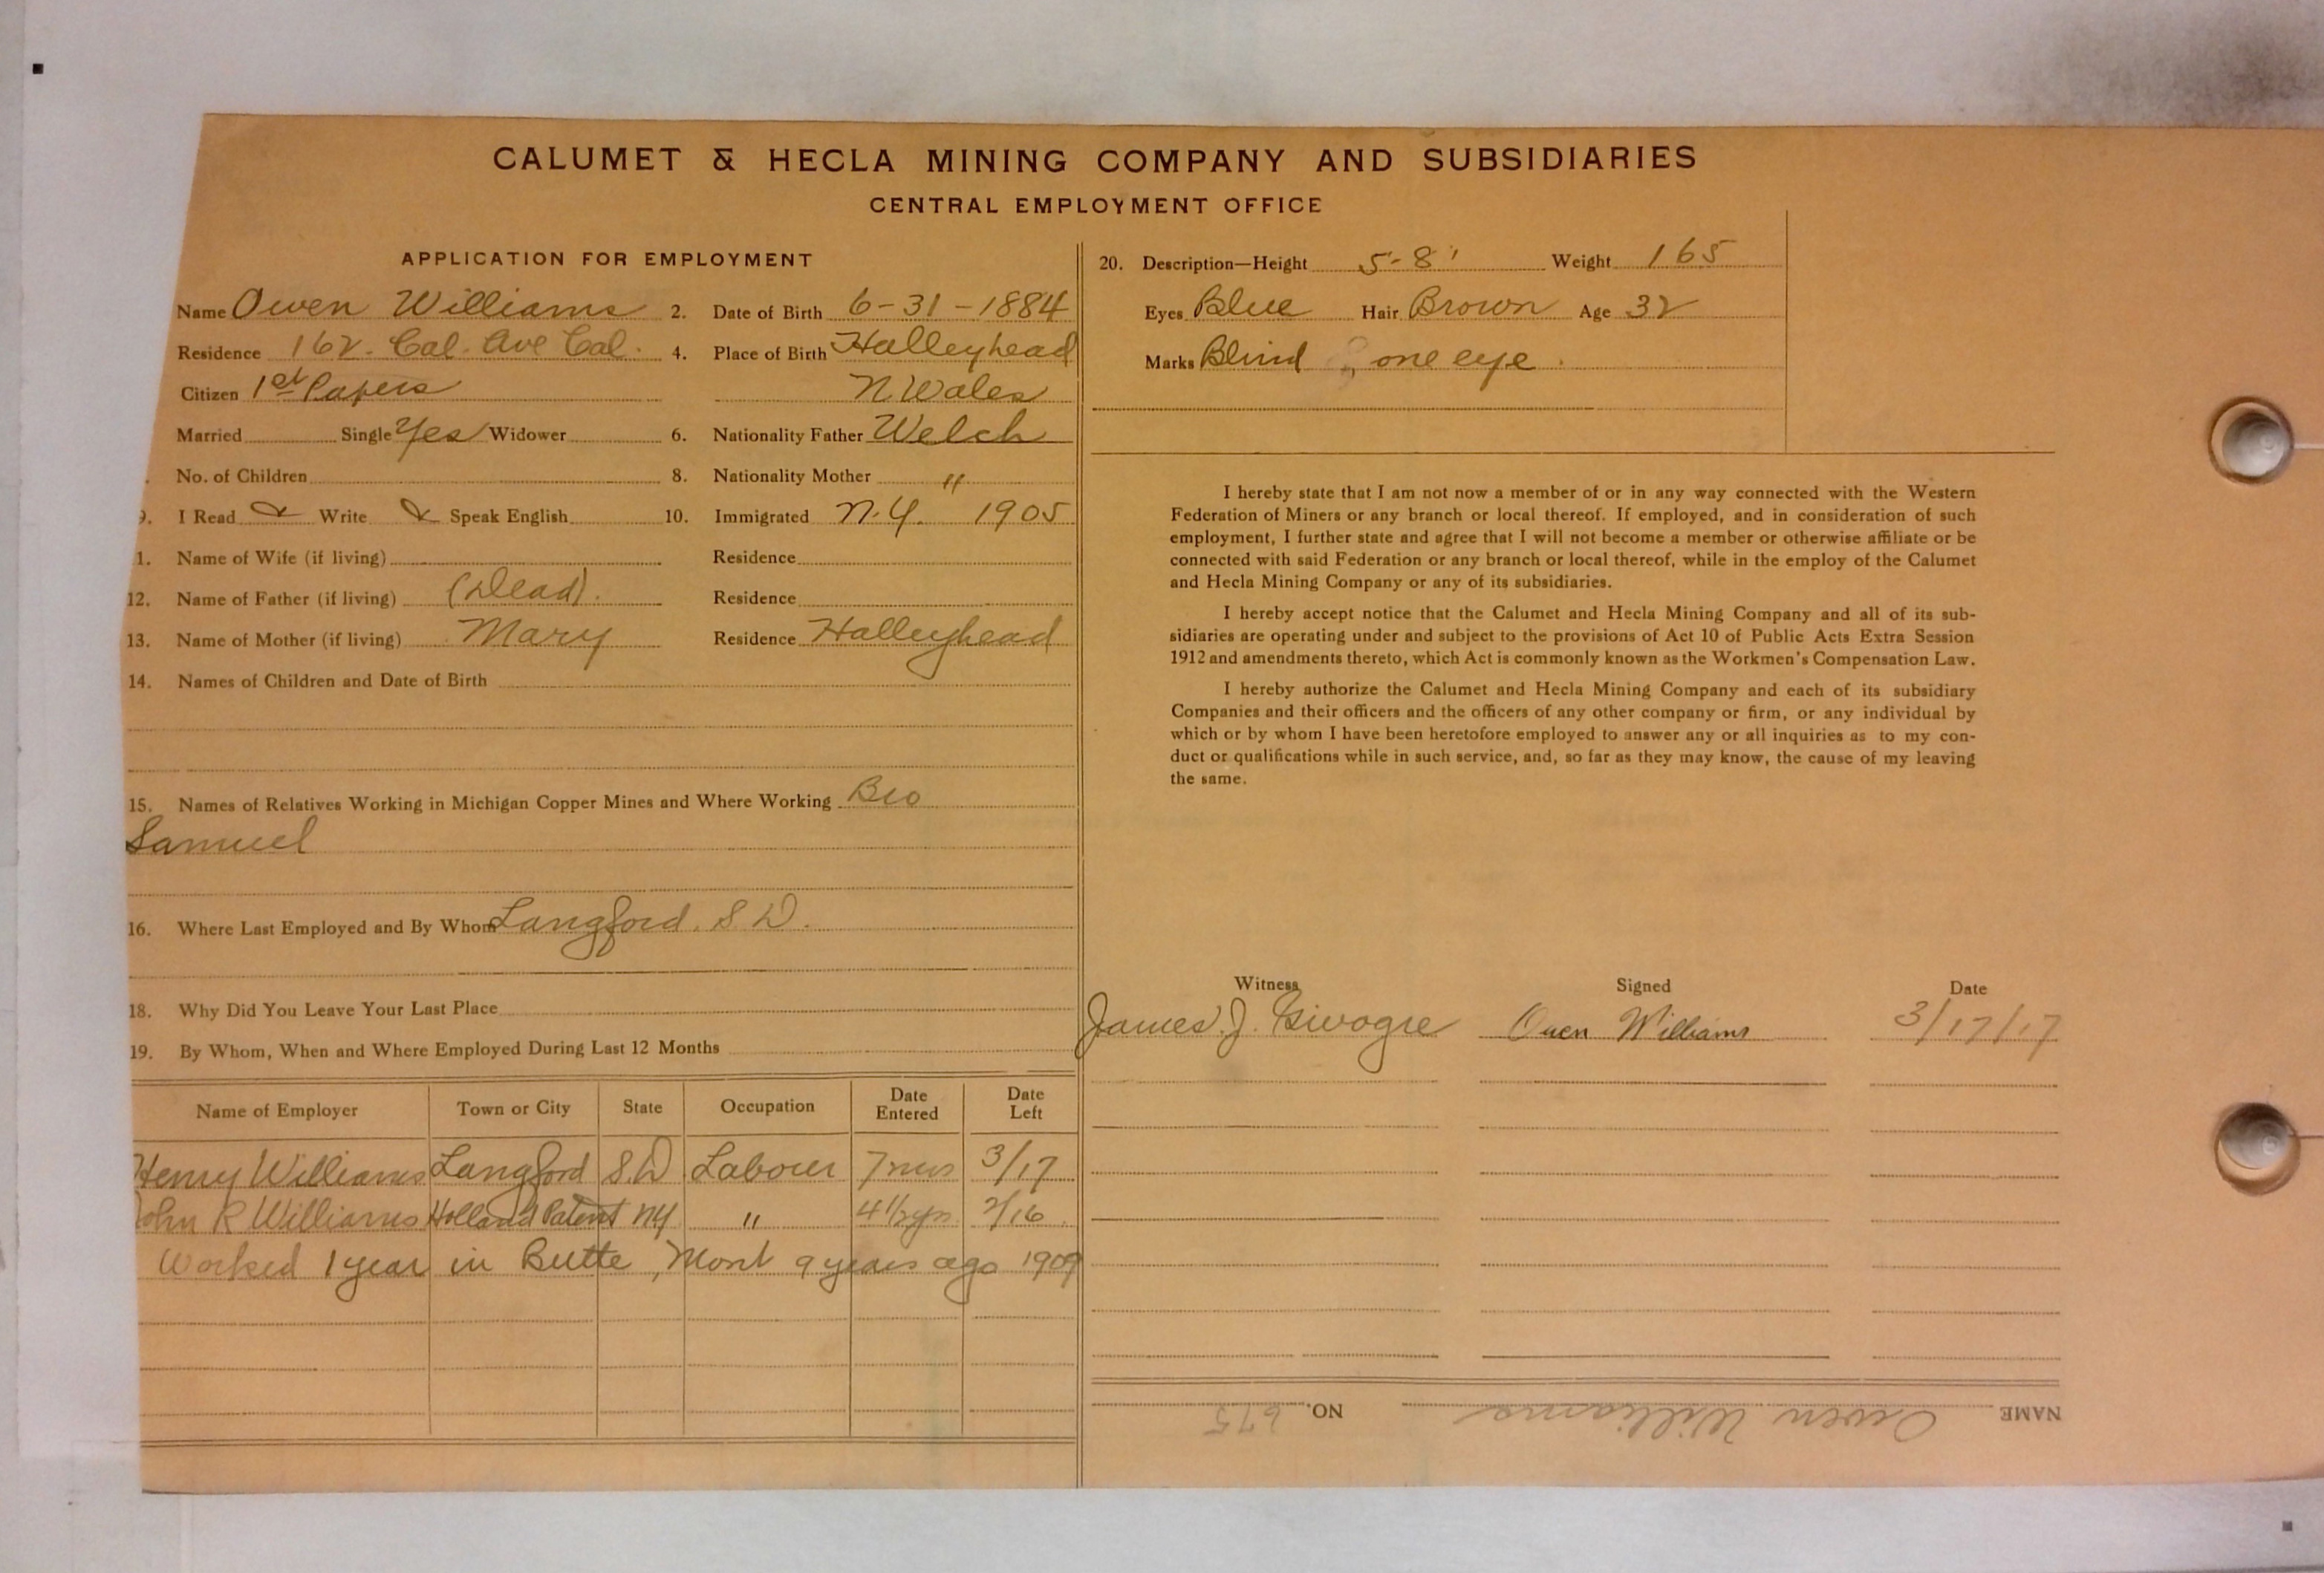 CALUMET & HECLA MINING COMPANY AND SUBSIDIARIES
CENTRAL EMPLOYMENT OFFICE
APPLICATION FOR EMPLOYMENT
Name Owen Williams 2. Date of Birth 6-31-1884
Residence 162. Cal. Ave Cal. 4. Place of Birth Halleyhead
Citizen 1st Papers N. Wales
Married Single Yes Widower 6. Nationality Father Welch
No. of Children 8. Nationality Mother "
9. I Read & Write & Speak English 10. Immigrated N.Y. 1905
1. Name of Wife (if living) Residence
12. Name of Father (if living) (Dead). Residence
13. Name of Mother (if living) Mary Residence Halleyhead
14. Names of Children and Date of Birth
15. Names of Relatives Working in Michigan Copper Mines and Where Working Bro
Samuel
16. Where Last Employed and By Whom Langford. S D.
18. Why Did You Leave Your Last Place
19. By Whom, When and Where Employed During Last 12 Months
Name of Employer Town or City State Occupation Date Entered Date Left
Henry Williams Langford S.D. Labour 7 mos 3/17
John R Williams Holland Patent NY " 4 1/2 yrs. 2/16
Worked 1 year in Butte, Mont 9 years ago 1909
20. Description—Height 5-8' Weight 165
Eyes Blue Hair Brown Age 32
Marks Blind one eye.
I hereby state that I am not now a member of or in any way connected with the Western
Federation of Miners or any branch or local thereof. If employed, and in consideration of such
employment, I further state and agree that I will not become a member or otherwise affiliate or be
connected with said Federation or any branch or local thereof, while in the employ of the Calumet
and Hecla Mining Company or any of its subsidiaries.
I hereby accept notice that the Calumet and Hecla Mining Company and all of its sub-
sidiaries are operating under and subject to the provisions of Act 10 of Public Acts Extra Session
1912 and amendments thereto, which Act is commonly known as the Workmen's Compensation Law.
I hereby authorize the Calumet and Hecla Mining Company and each of its subsidiary
Companies and their officers and the officers of any other company or firm, or any individual by
which or by whom I have been heretofore employed to answer any or all inquiries as to my con-
duct or qualifications while in such service, and, so far as they may know, the cause of my leaving
the same.
Witness Signed Date
James J. Owen Williams 3/17/17
NAME Owen Williams NO. 675